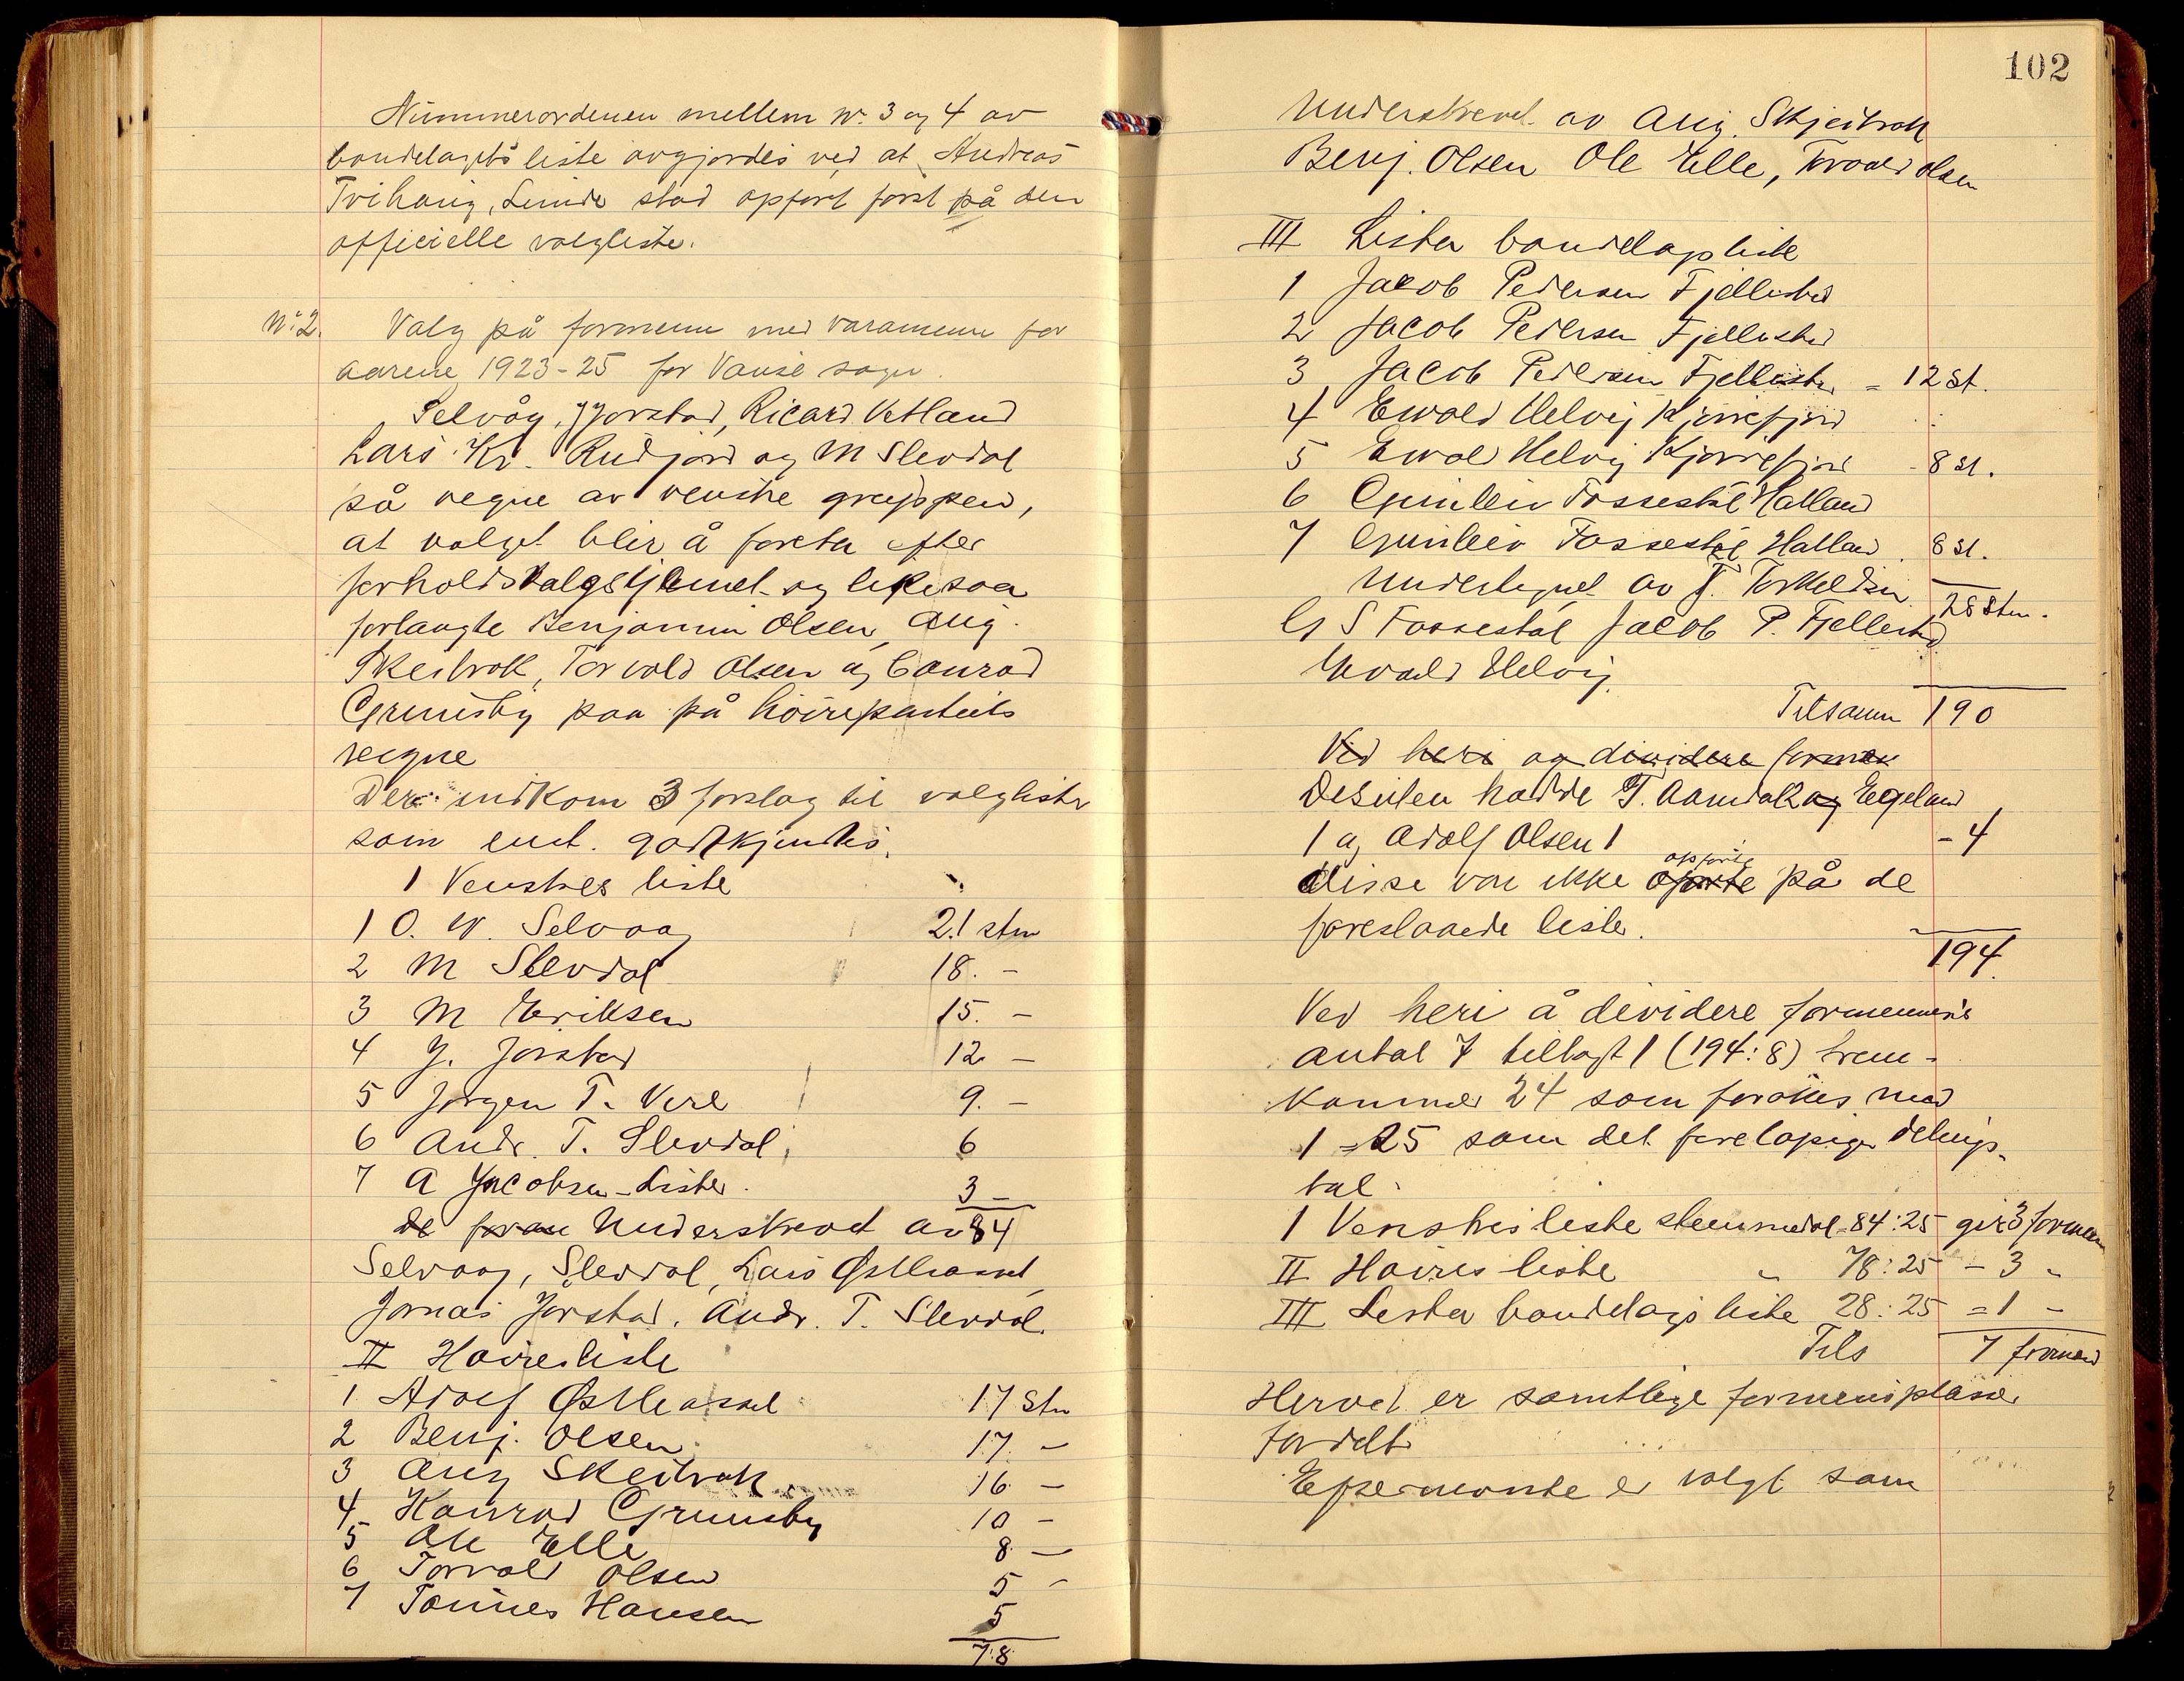 Nummerordenen mellem nr. 3 og 4 av
bondelagets liste avgjordes ved at Andreas
Trihaug, Lunde stod opført først på den
officielle valgliste.
Nr. 2. Valg på formenn med varamenn for
aarene 1923-25 for Vanse sogn.
Selvåg, J Jørstad, Ricard Vetland
Lars Kr. Rudjord og M Slevdal
på vegne av venstre gruppen,
at valget blir å foreta efter
forholdsvalgstjemet og likesaa
forlangte Benjamin Olsen, Aug.
Skeibrok, Torvald Olsen og Conrad
Grimsby paa på høirepartiets
vegne
Der indkom 3 forslag til valglister
som enst. godkjendtes.
1 Venstres liste
1 O. W. Selvaag 21 stm
2 M Slevdal 18. -
3 M Eriksen 15. -
4 J. Jørstad 12 -
5 Jørgen T. Vere 9. -
6 Andr. T. Slevdal 6
7 A Jacobsen-Lister 3 -
de foran Underskrevet av 84
Selvaag, Slevdal, Lars Østhassel
Jonas Jørstad. Andr. T. Slevdal.
II Høires liste
1 Adolf Østhassel 17 stm
2 Benj. Olsen 17. -
3 Aug Skeibrok 16 -
4 Konrad Grimsby 10 -
5 Ole Elle 8 -
6 Torvald Olsen 5 -
7 Tønnes Hansen 5
78
102
Underskrevet av Aug. Skjeibrok
Benj. Olsen Ole Elle, Torvald Olsen
III Lister bondelags liste
1 Jacob Pedersen Fjellestad
2 Jacob Pedersen Fjellestad
3 Jacob Pedersen Fjellestad = 12 st.
4 Ewald Helvig Kjørrefjord
5 Ewald Helvig Kjørrefjord - 8 st.
6 Gunleiv Fossestøl Hatland
7 Gunleiv Fossestøl Hatland. 8 st.
Undertegnet av T. Torkeldsen 28 stm.
G S Fossestøl Jacob P. Fjellestad
Ewald Helvig.
Tilsamm 190
Ved heri og dividere formen
Desuten hadde T. Aamdal og Eegeland
1 og Adolf Olsen 1 - 4
disse var ikke oporte opførte på de
foreslaaede lister.
194.
Ved heri å dividere formennenes
antal 7 tillagt 1 (194:8) frem-
kommer 24 som forøkes med
1 = 25 som det foreløpige delings-
tal.
1 Venstres liste stemmetal 84:25 gir 3 formenn
II Høires liste " 78:25 - 3 "
III Lister bondelags liste 28:25 = 1 -
Tils 7 formenn
Herved er samtlige formensplasser
fordelt
Efternevnte er valgt som